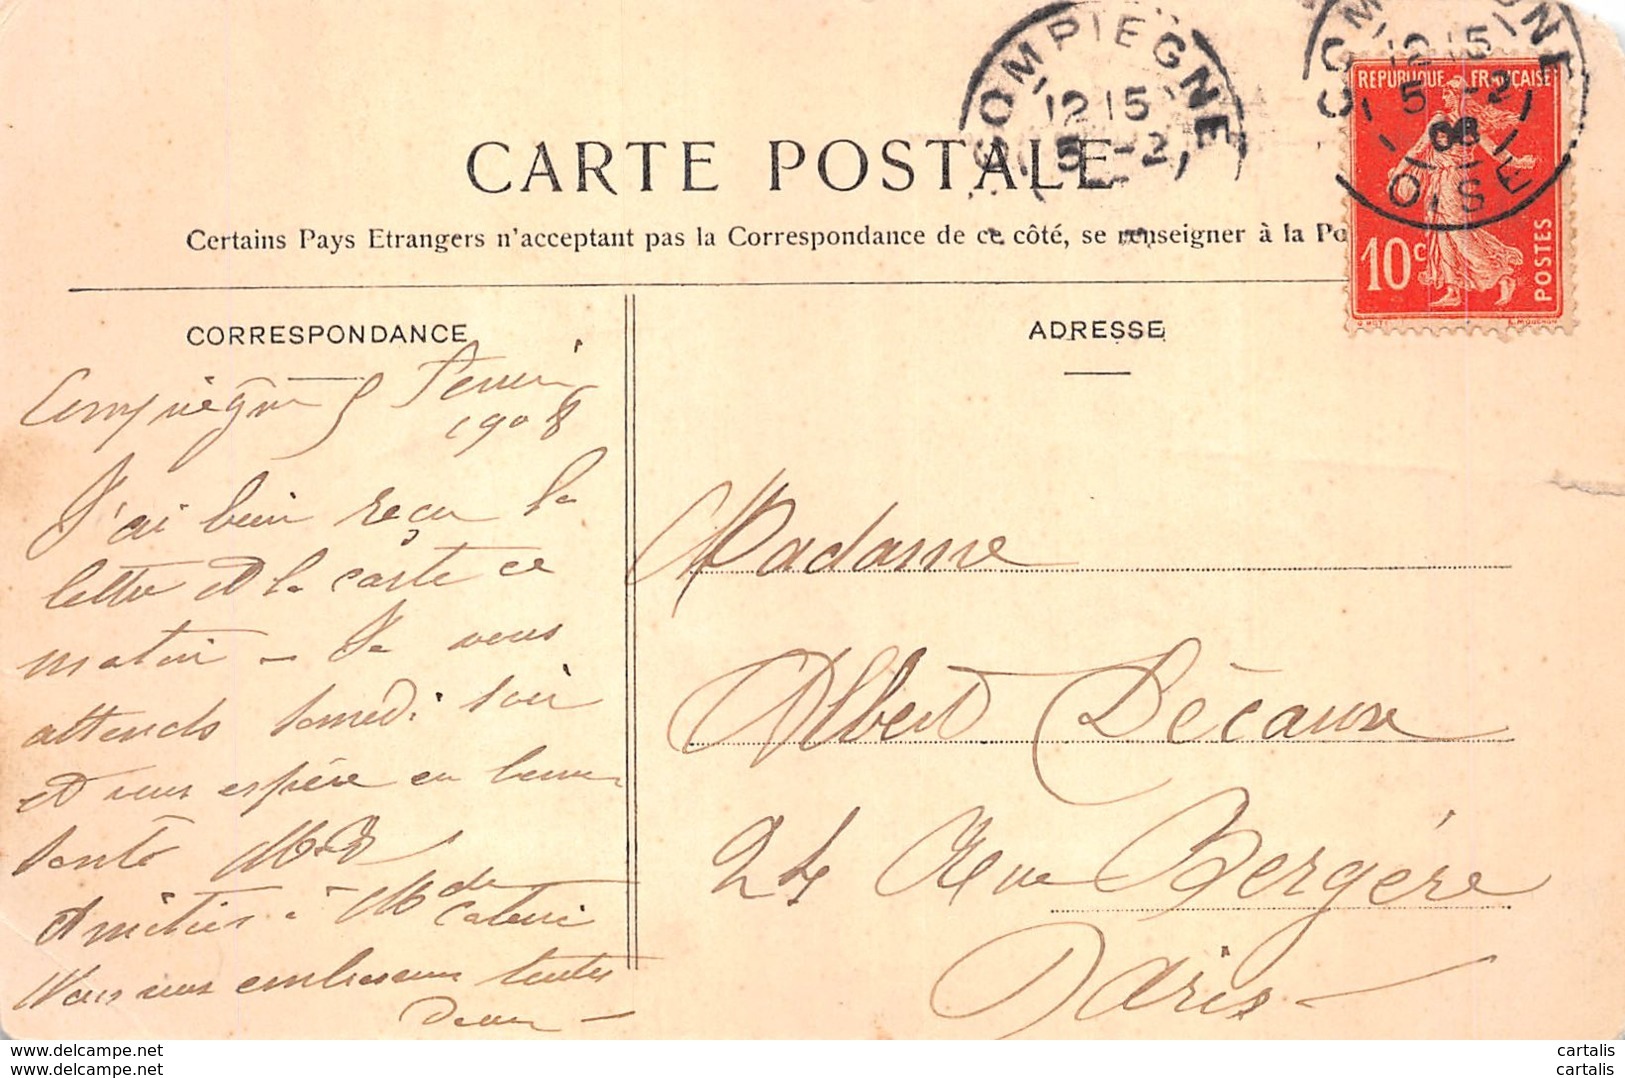 COMPIEGNE
12 15
5 -2
COMPIEGNE
12 15
5 -2
08
OISE
REPUBLIQUE FRANÇAISE
10 c
POSTES
CARTE POSTALE
Certains Pays Etrangers n'acceptant pas la Correspondance de ce côté, se renseigner à la Po
CORRESPONDANCE
Compiègne 5 Février
1908
J'ai bien reçu la
lettre et la carte ce
matin - Je vous
attends samedi soir
et vous espère en bonne
santé
Amitiés à Mde
Nous vous embrassons toutes
deux -
ADRESSE
Madame
Albert Décaux
24 Rue Bergère
Paris -
cartalis
cartalis
cartalis
cartalis